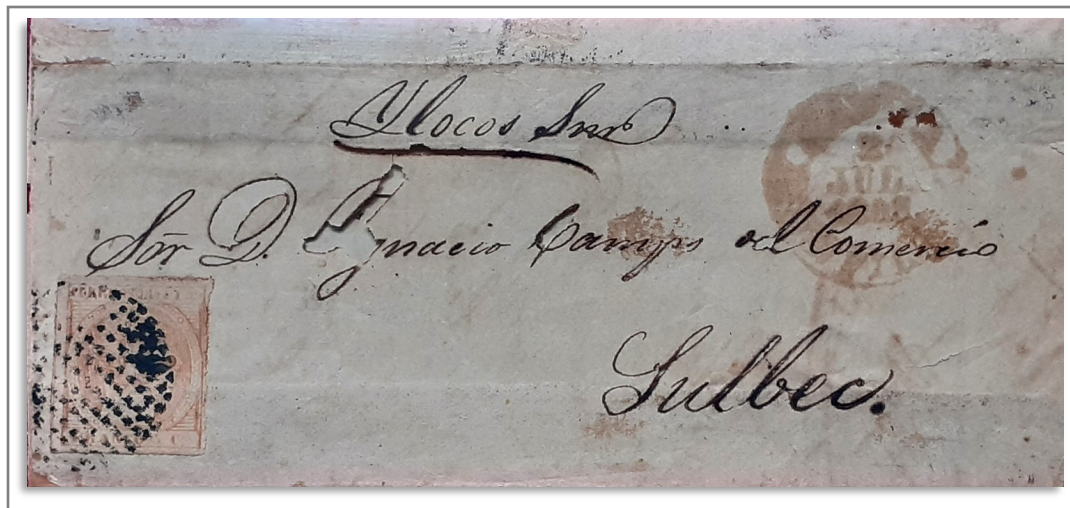 Ylocos Sur
Sor D. Ygnacio Camps del Comercio
Sulbec.